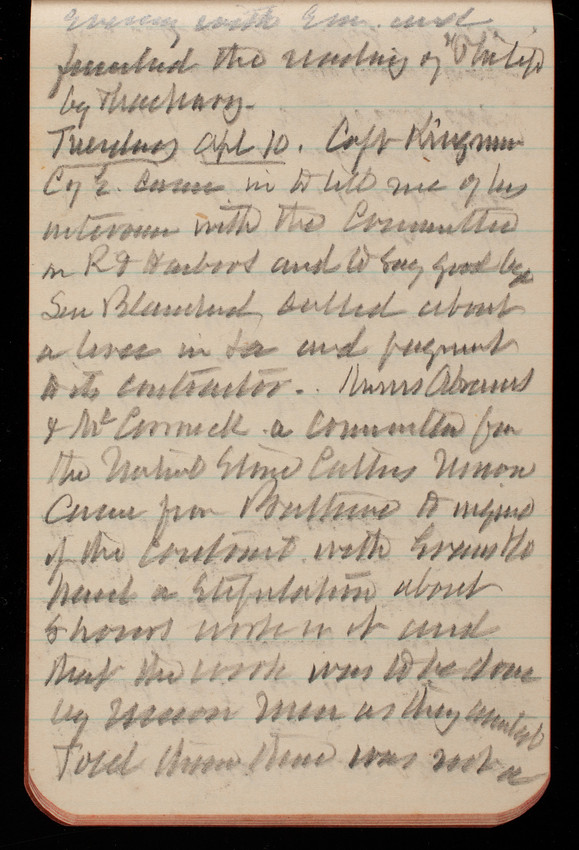 Evening with Em. and
finished the reading of "Philip
by Thackeray.
Tuesday Apl 10. Capt Kingman
C of E. came in to tell me of his
interview with the Committee
on R & Harbors and to say good bye
Sen Blanchard called about
a levee in La and payment
to the contractor. Abrams
& McCormick a committee from
the National Stone Cutters Union
came from Baltimore to inquire
if the contract with Evans & Co
had a stipulation about
8 hours work in it and
that the work was to be done
by Union men as they
Told them there was not a